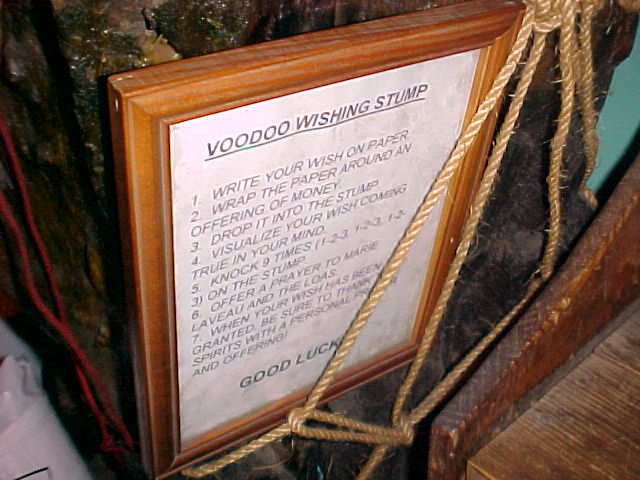 VOODOO WISHING STUMP
1. WRITE YOUR WISH ON PAPER
2. WRAP THE PAPER AROUND AN
OFFERING OF MONEY.
3. DROP IT INTO THE STUMP.
4. VISUALIZE YOUR WISH COMING
TRUE IN YOUR MIND.
5. KNOCK 9 TIMES (1-2-3, 1-2-3, 1-2-
3) ON THE STUMP.
6. OFFER A PRAYER TO MARIE
LAVEAU AND THE LOAS.
7. WHEN YOUR WISH HAS BEEN
GRANTED, BE SURE TO THANK
SPIRITS WITH A PERSONAL PRAYER
AND OFFERING!
GOOD LUCK